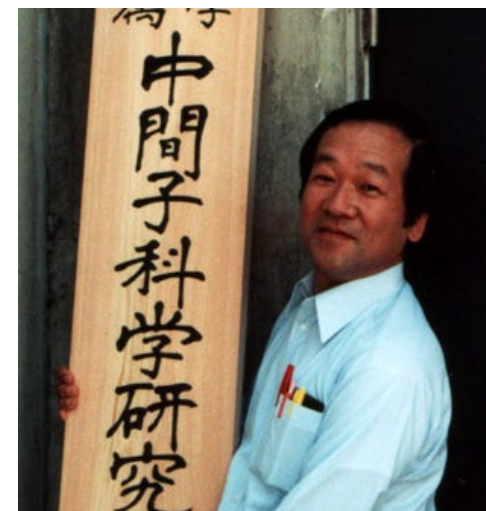 中間子科学研究